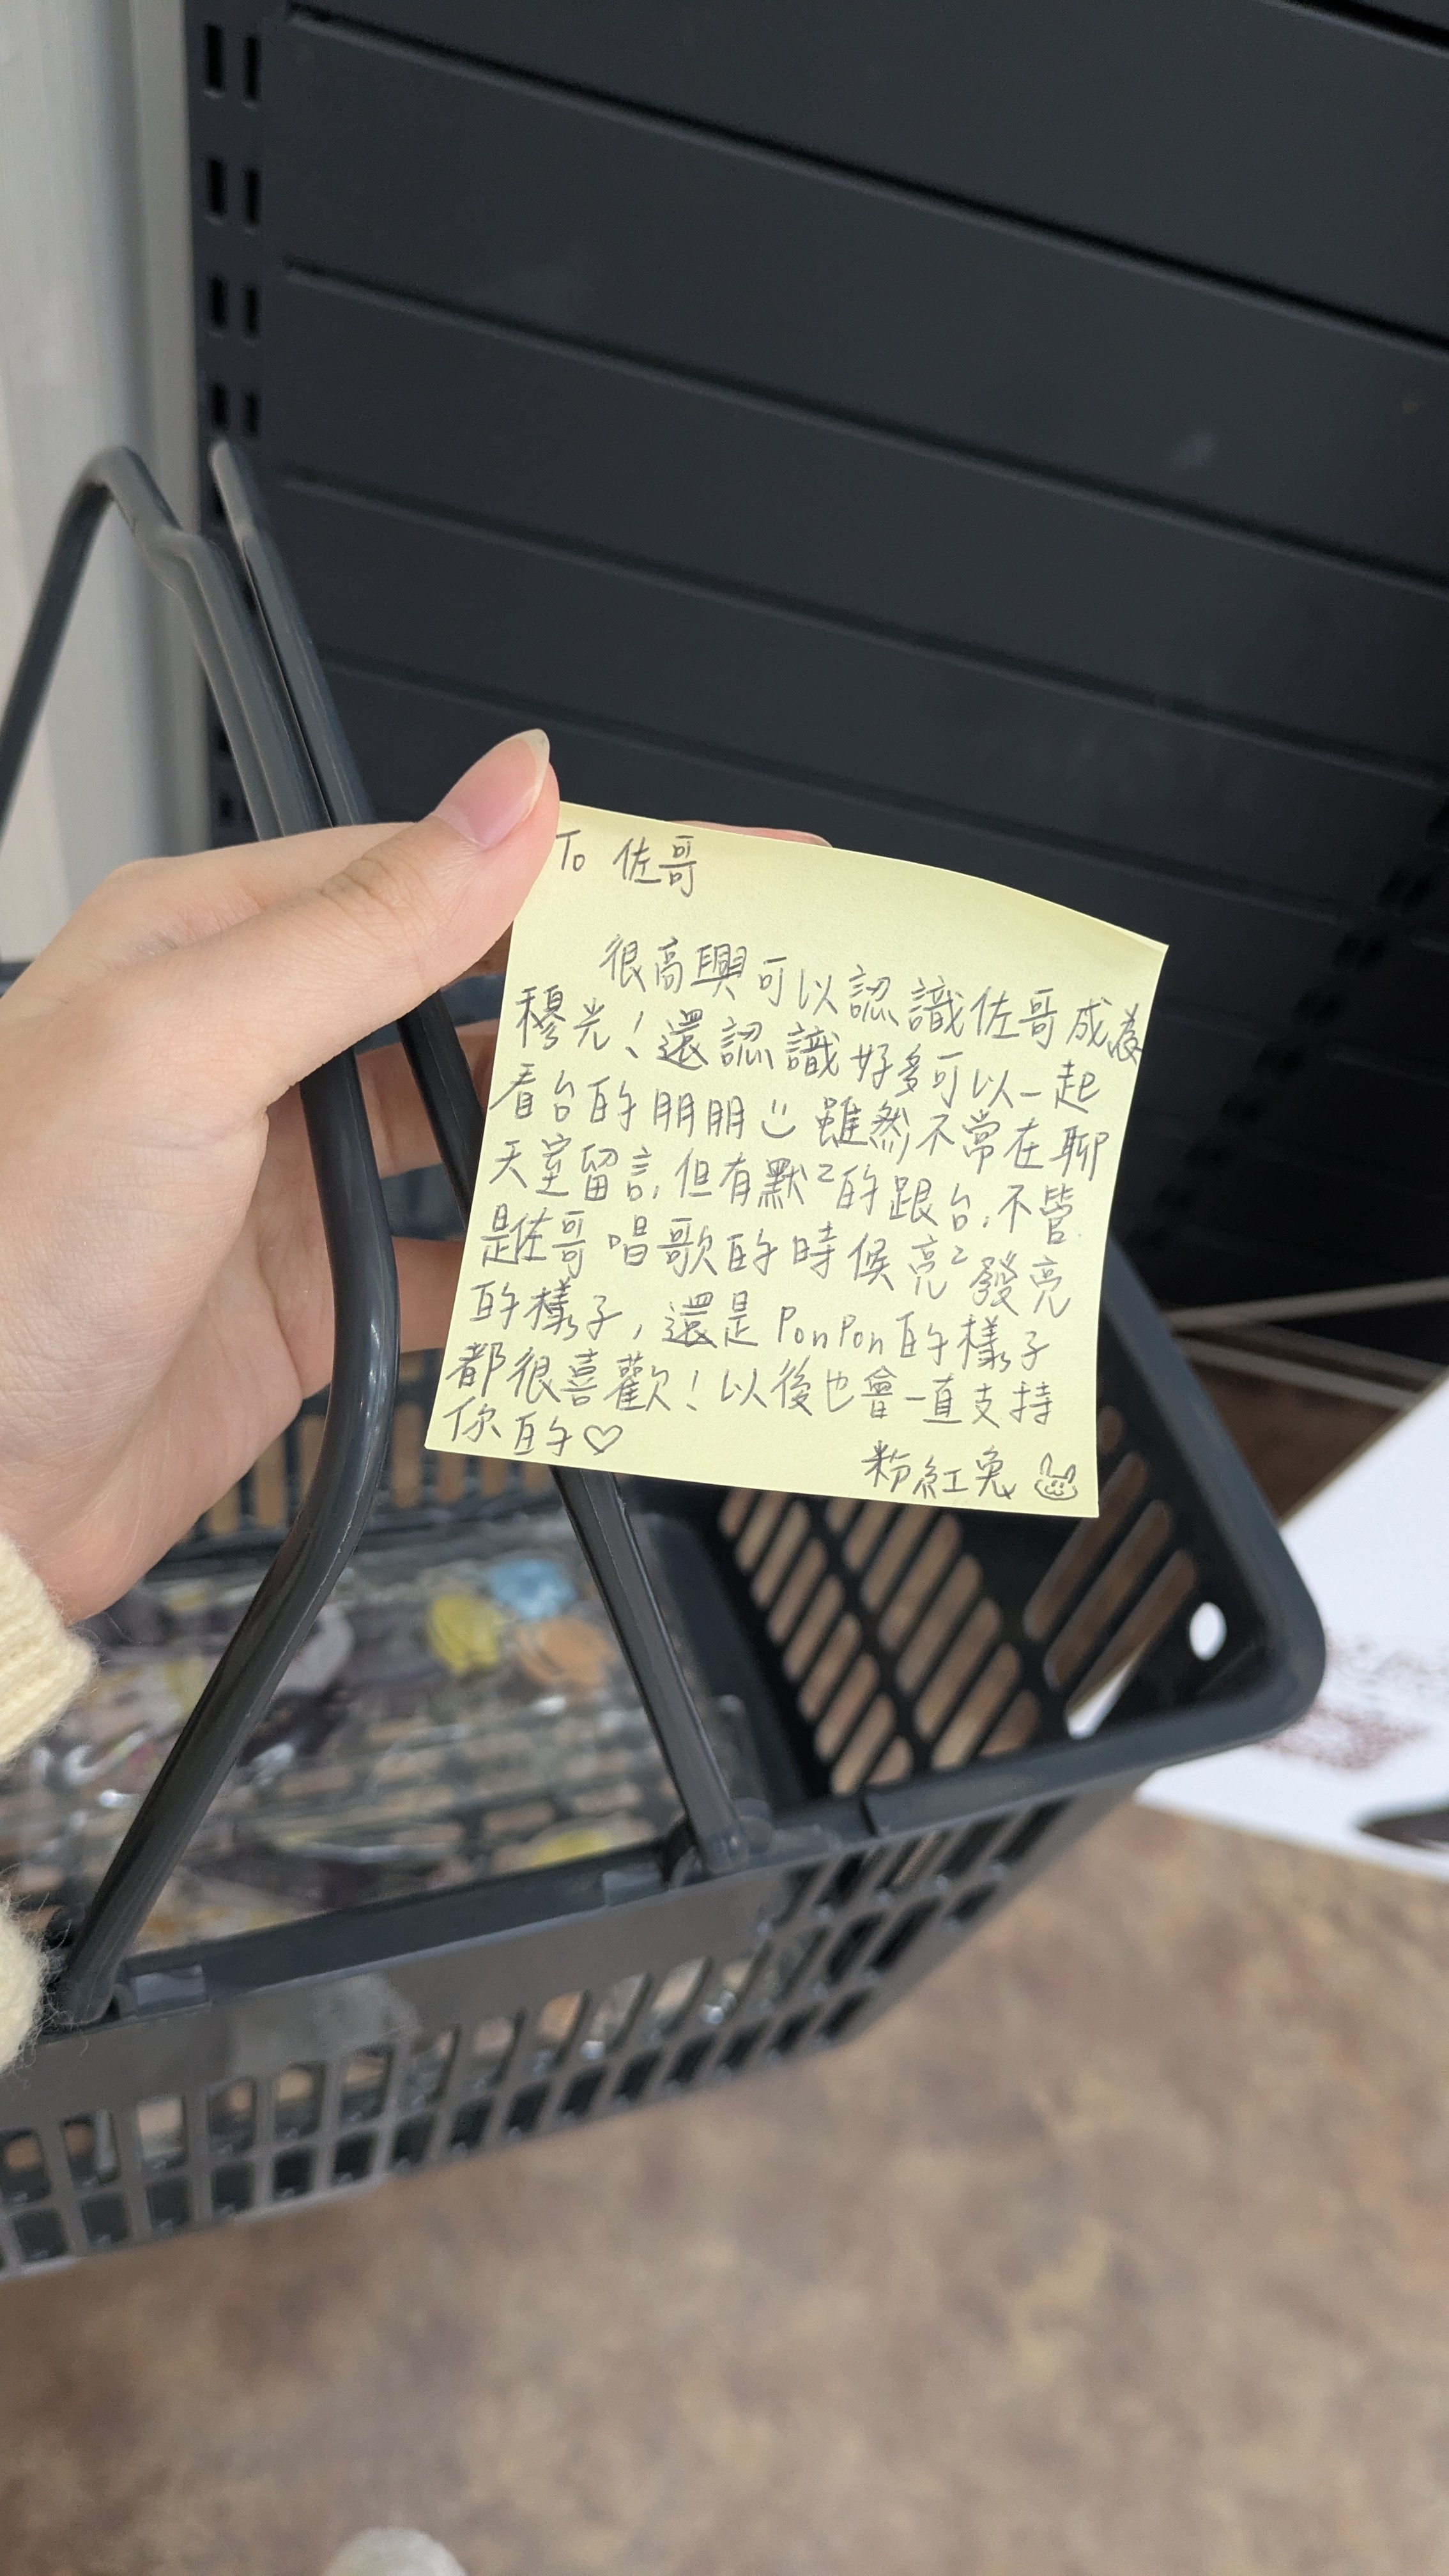 To 佐哥
很高興可以認識佐哥成為
穆光！還認識好多可以一起
看台的朋朋 雖然不常在聊
天室留言,但有默²的跟台,不管
是佐哥唱歌的時候亮²發亮
的樣子,還是PonPon的樣子
都很喜歡！以後也會一直支持
你的♡
粉紅兔